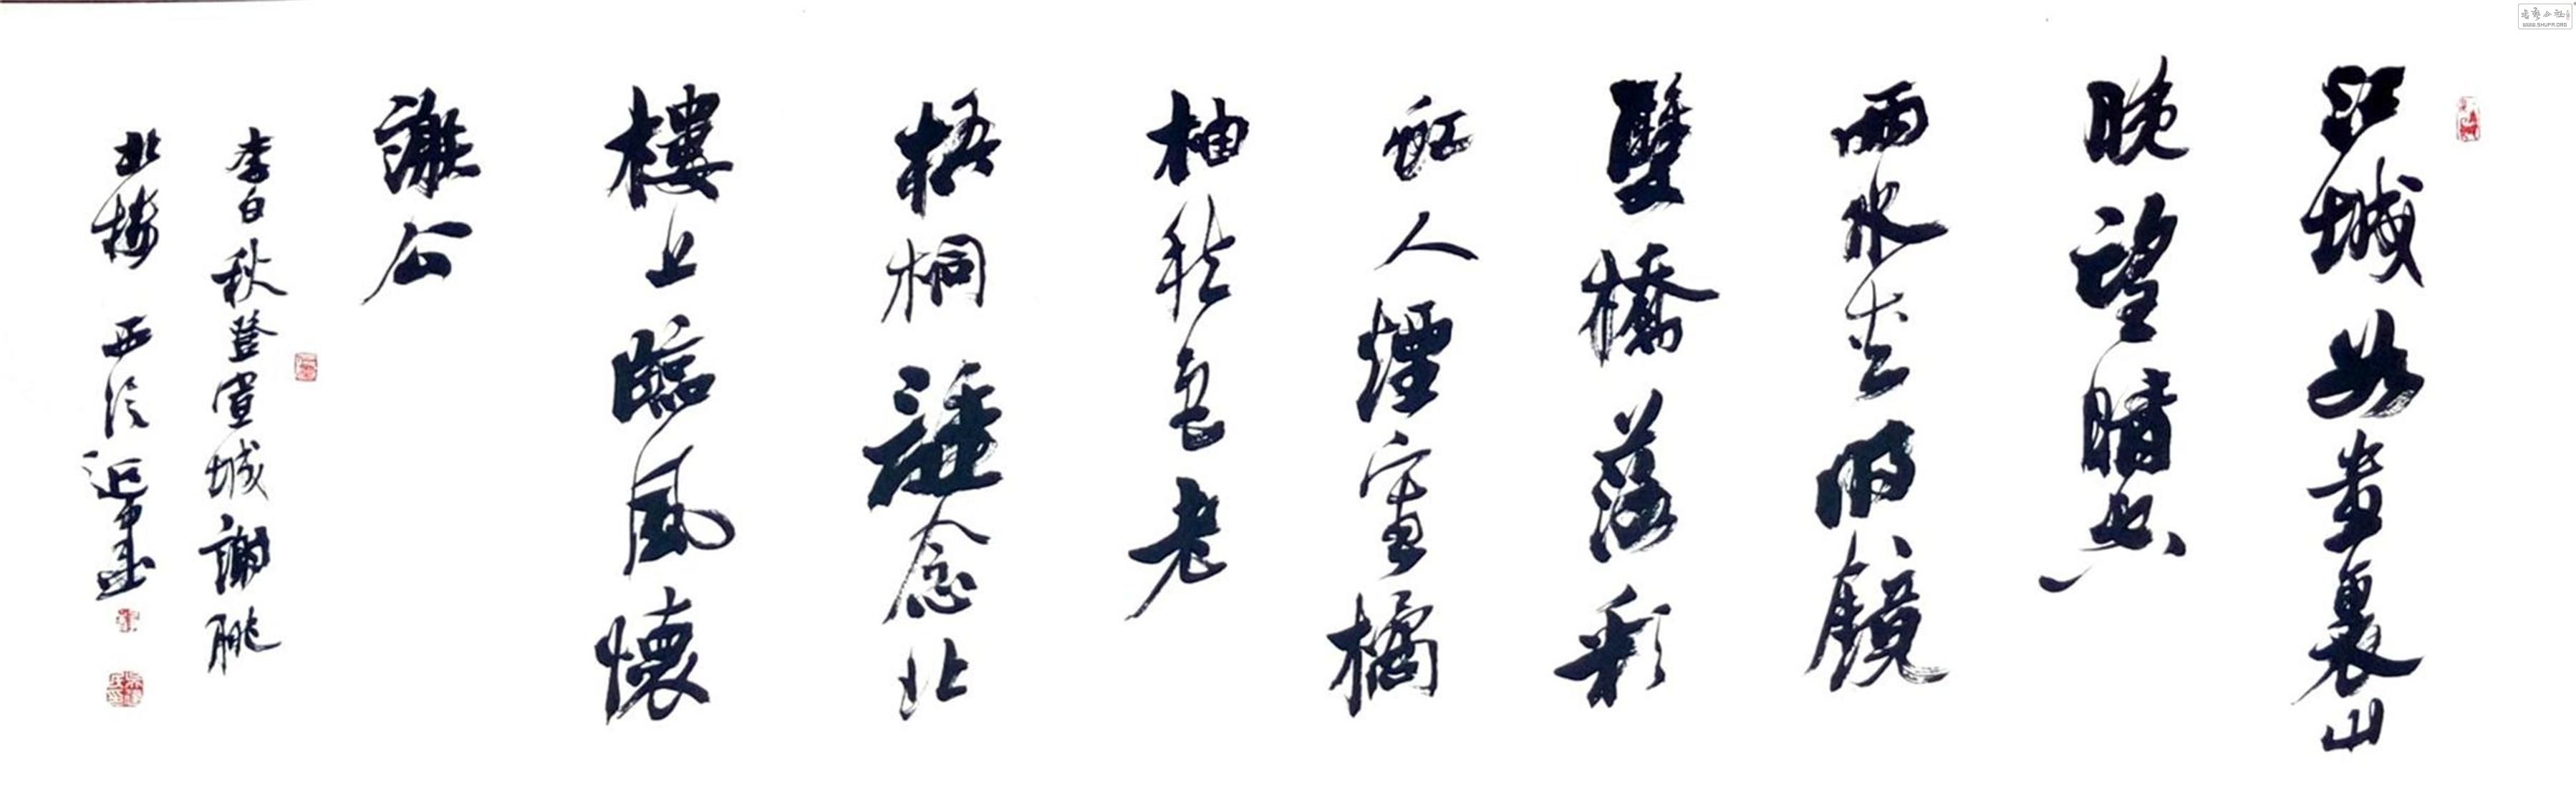 江城如畫裏山
晚望晴空
兩水夾明鏡
雙橋落彩
虹人煙寒橘
柚秋色老
梧桐誰念北
樓上臨風懷
謝公
李白秋登宣城謝朓
北樓 西泠